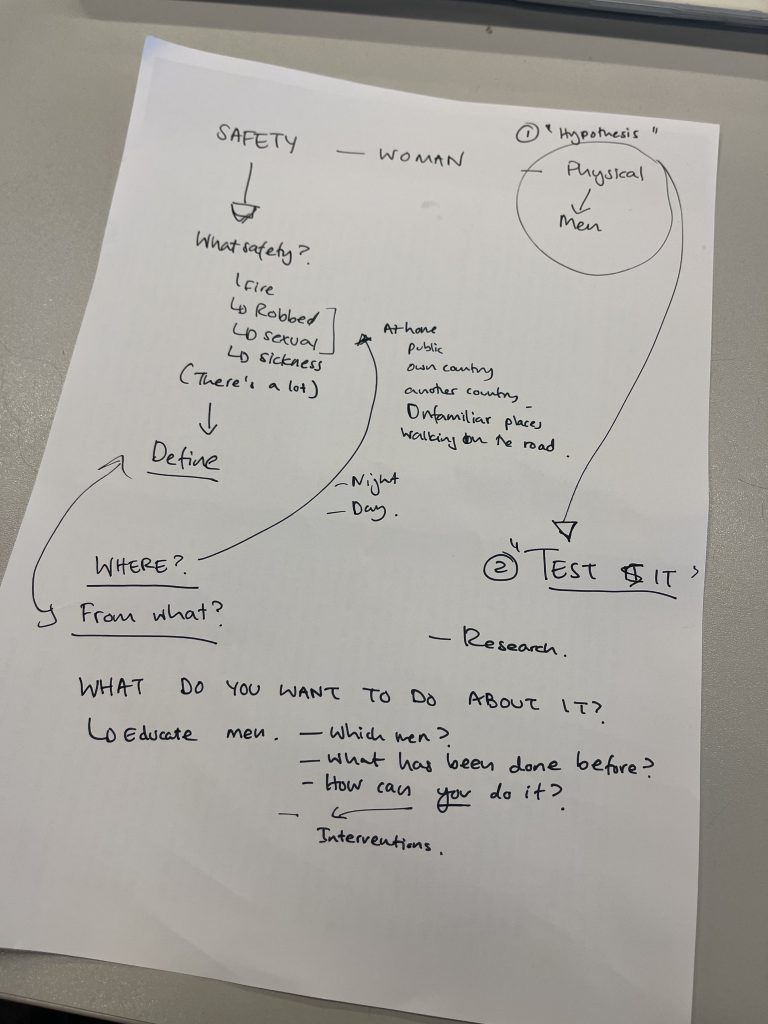 SAFETY — WOMAN
What safety?
Fire
Robbed
sexual
sickness
(There's a lot)
Define
① "Hypothesis"
— Physical
Men
At home
public
own country
another country
Unfamiliar places
walking on the road.
— Night
— Day.
WHERE?
From what?
② "TEST IT"
— Research.
WHAT DO YOU WANT TO DO ABOUT IT?
Educate men. — Which men?
— What has been done before?
— How can you do it?
—
Interventions.